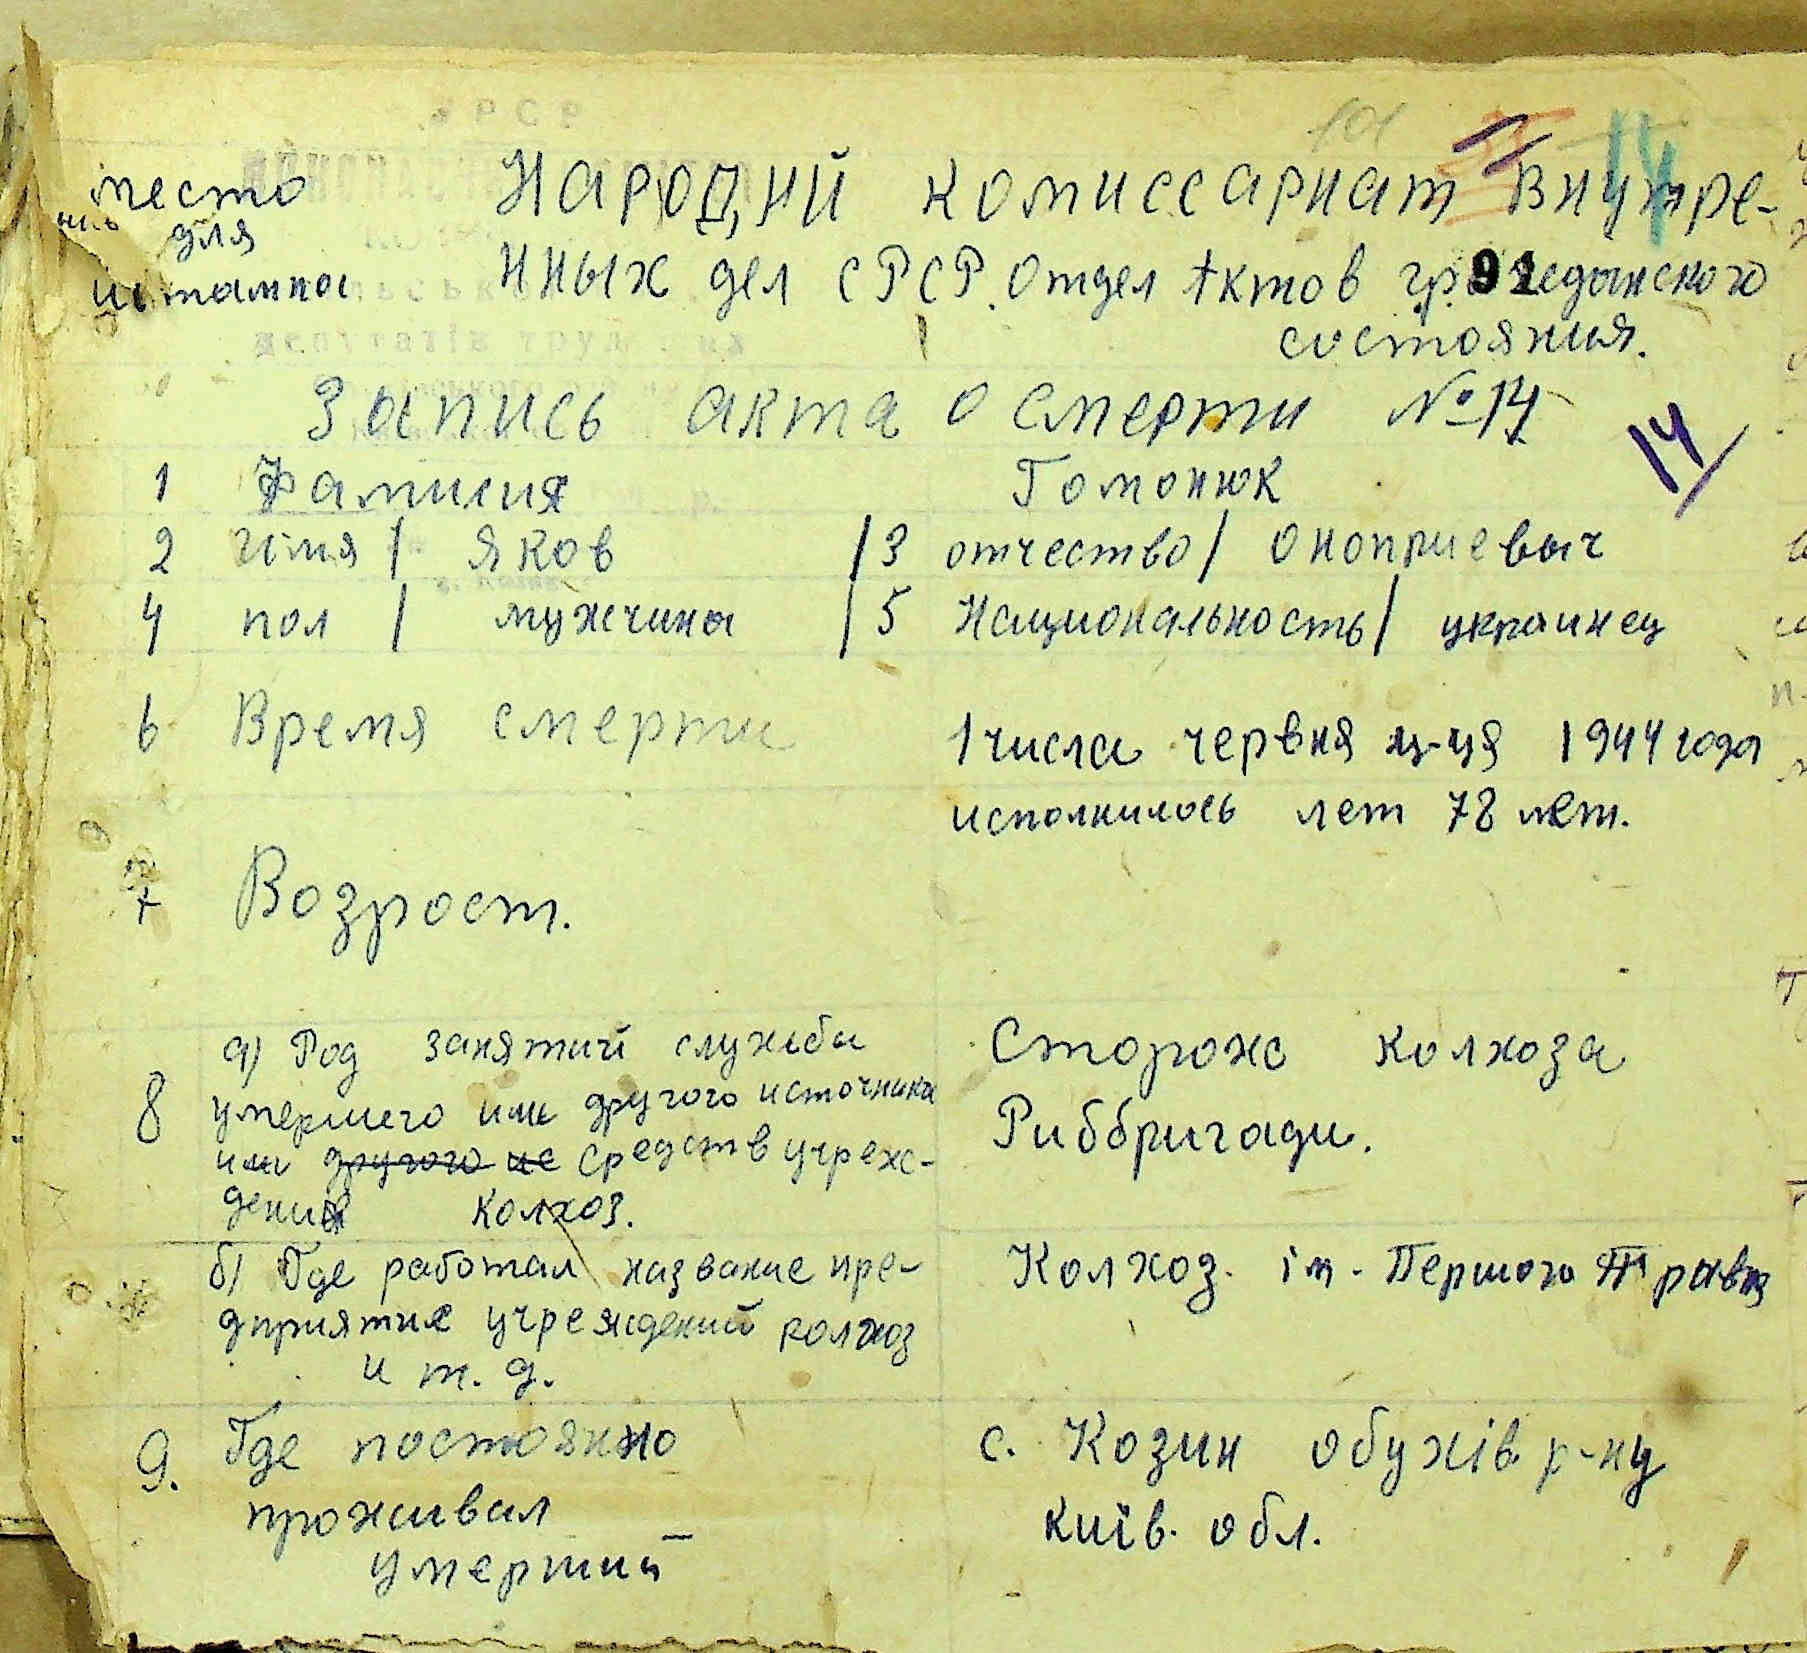 место
для
штампа
Народний комиссариат Внутре-
нных дел СРСР. Отдел Актов гр 91 жеданского
состояния.
Запись акта о смерти №14
14
14
1 Фамилия Гомонюк
2 Имя / Яков / 3 отчество / Оноприевыч
4 пол / мужчина / 5 Национальность / украинец
6 Время смерти 1 числа червня м-ця 1944 года
исполнилось лет 78 лет.
7 Возрост.
8 а) Род занятий службы Сторож колхоза
умершего или другого источника Риббригади.
или другого ис средств учреж-
дения колхоз.
б) Где работал название пре- Колхоз. ім. Першого Травня
дприятие учреждений колхоз
и т. д.
9. Где постоянно с. Козин обухів. р-ну
проживал київ. обл.
умерший